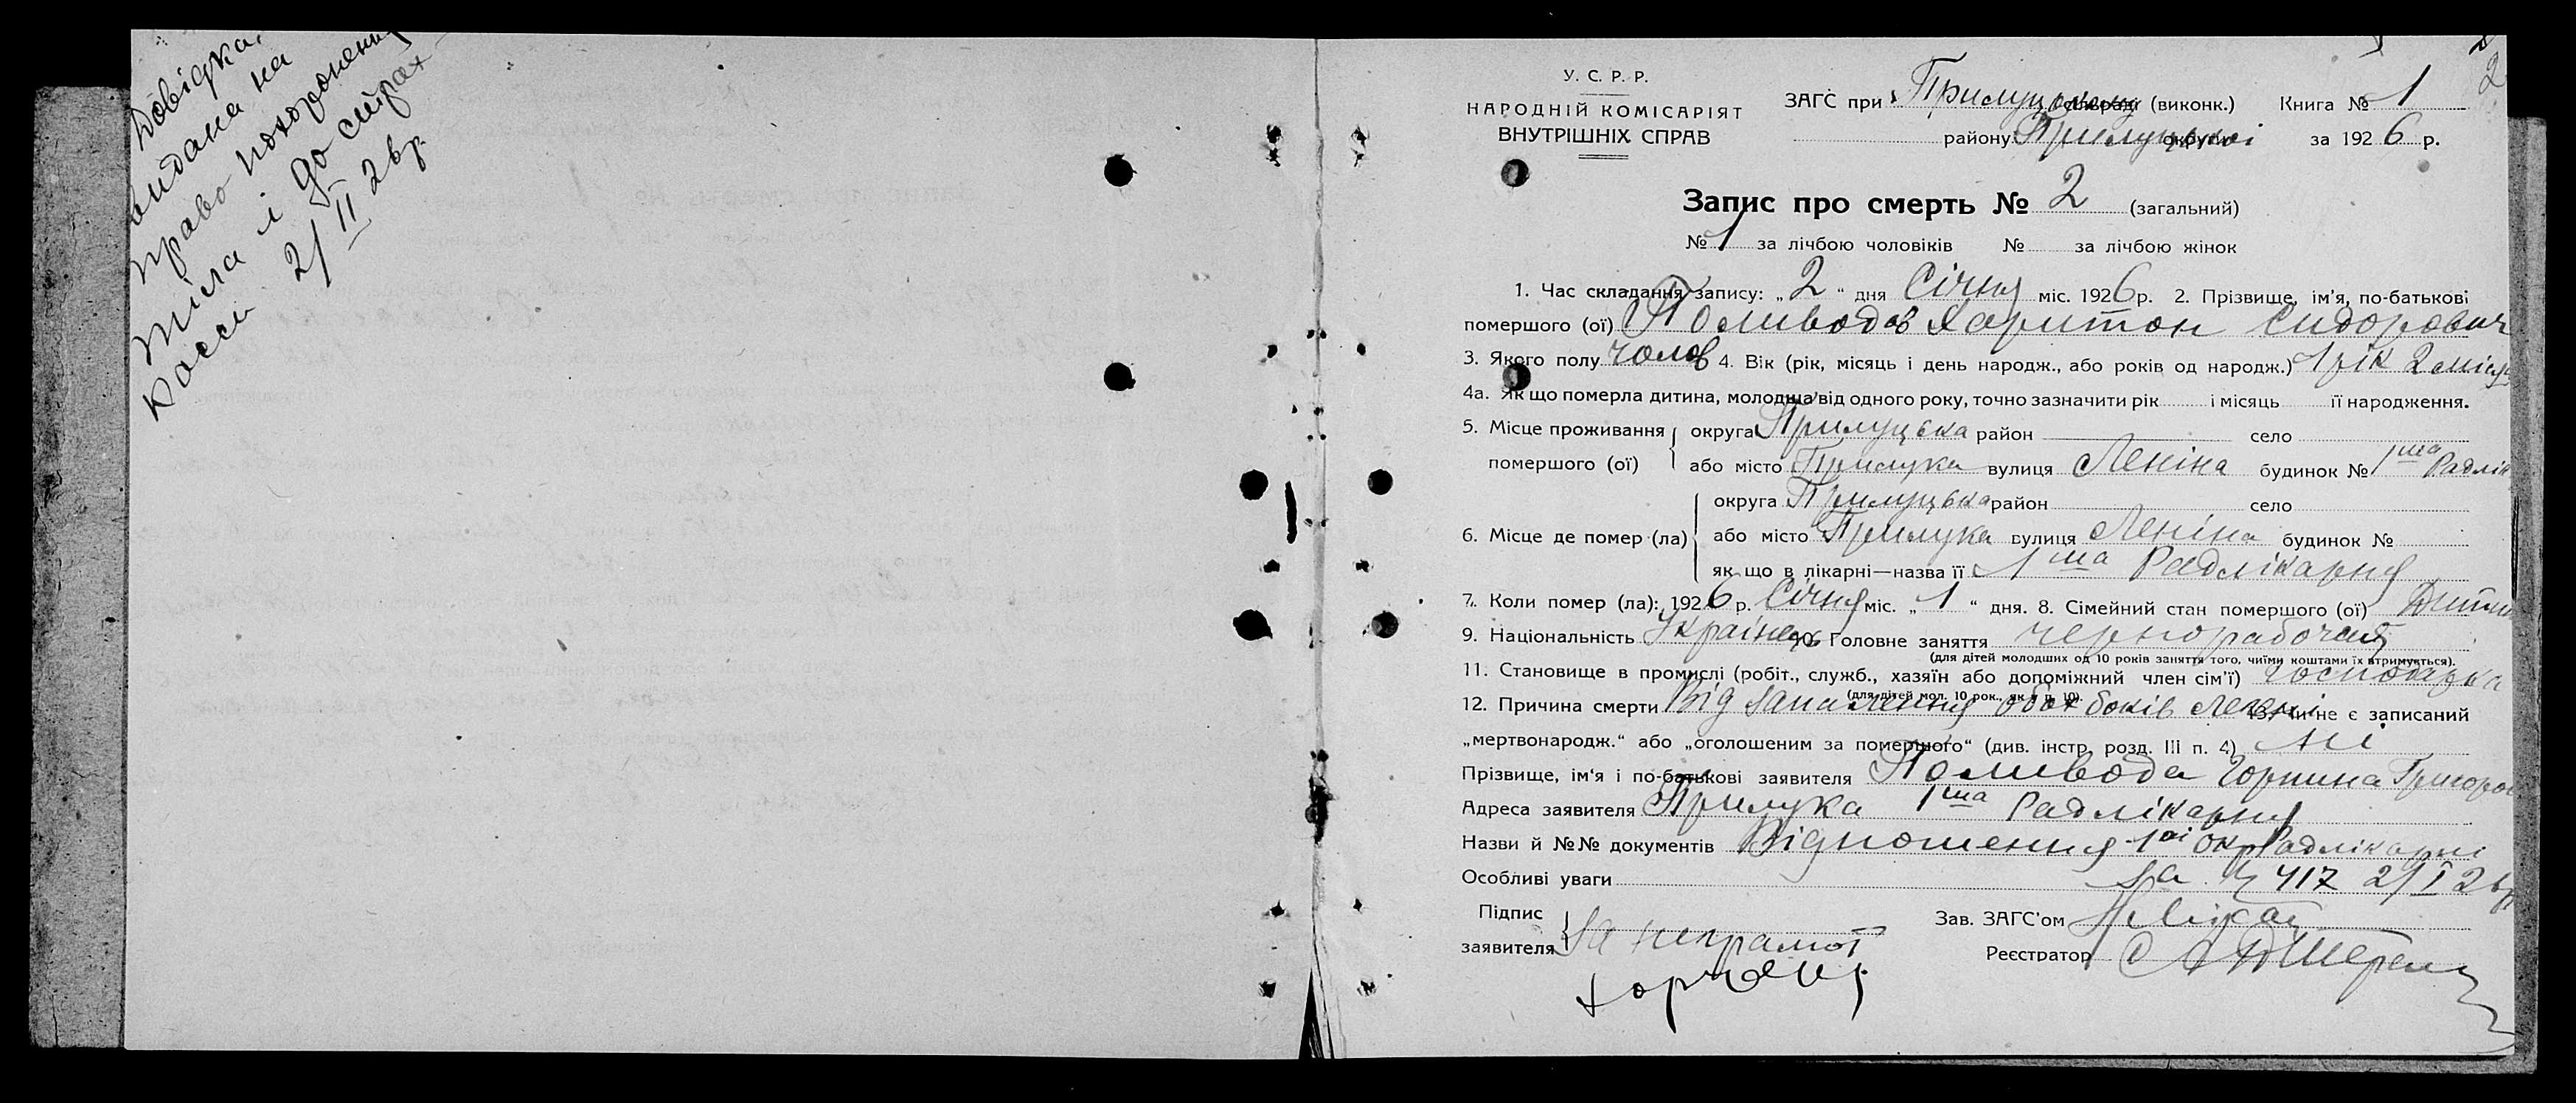 Довідка
видана на
право похоронення
тіла і до страх
касси 2/II 26р.
2
У. С. Р. Р.
НАРОДНІЙ КОМІСАРІЯТ
ВНУТРІШНІХ СПРАВ
ЗАГС при Прилуцькому (виконк.) Книга № 1
району Прилуцької округи за 1926 р.
Запис про смерть № 2 (загальний)
№ 1 за лічбою чоловіків № за лічбою жінок
1. Час складання запису: „2“ дня Січня міс. 1926 р. 2. Прізвище, ім'я, по-батькові
помершого (ої) Поливода Харитон Сидорович
3. Якого полу чолов 4. Вік (рік, місяць і день народж., або років од народж.) 1 рік 2 місяц
4а. Як що померла дитина, молодша від одного року, точно зазначити рік і місяць її народження.
5. Місце проживання округа Прилуцька район село
помершого (ої) або місто Прилука вулиця Леніна будинок № 1ша Радлік
округа Прилуцька район село
6. Місце де помер (ла) або місто Прилука вулиця Леніна будинок №
як що в лікарні—назва її 1ша Радлікарня
7. Коли помер (ла): 1926 р. Січня міс. „1“ дня. 8. Сімейний стан помершого (ої) Дитин
9. Національність Українець 10. Головне заняття чернорабочий
(для дітей молодших од 10 років заняття того, чиїми коштами їх втримується).
11. Становище в промислі (робіт., служб., хазяїн або допоміжний член сім'ї) господарка
(для дітей мол. 10 рок., як в п. 10).
12. Причина смерти Від запалення обох боків легені 13. Чи не є записаний
„мертвонародж.“ або „оголошеним за помершого“ (див. інстр. розд. III п. 4) Ні
Прізвище, ім'я і по-батькові заявителя Поливода Горпина Григоров
Адреса заявителя Прилука 1ша Радлікарня
Назви й №№ документів Відношення 1ої окр Радлікарні
Особливі уваги за № 417 2/I 26р
Підпис Зав. ЗАГС'ом
заявителя За неграмот
Реєстратор